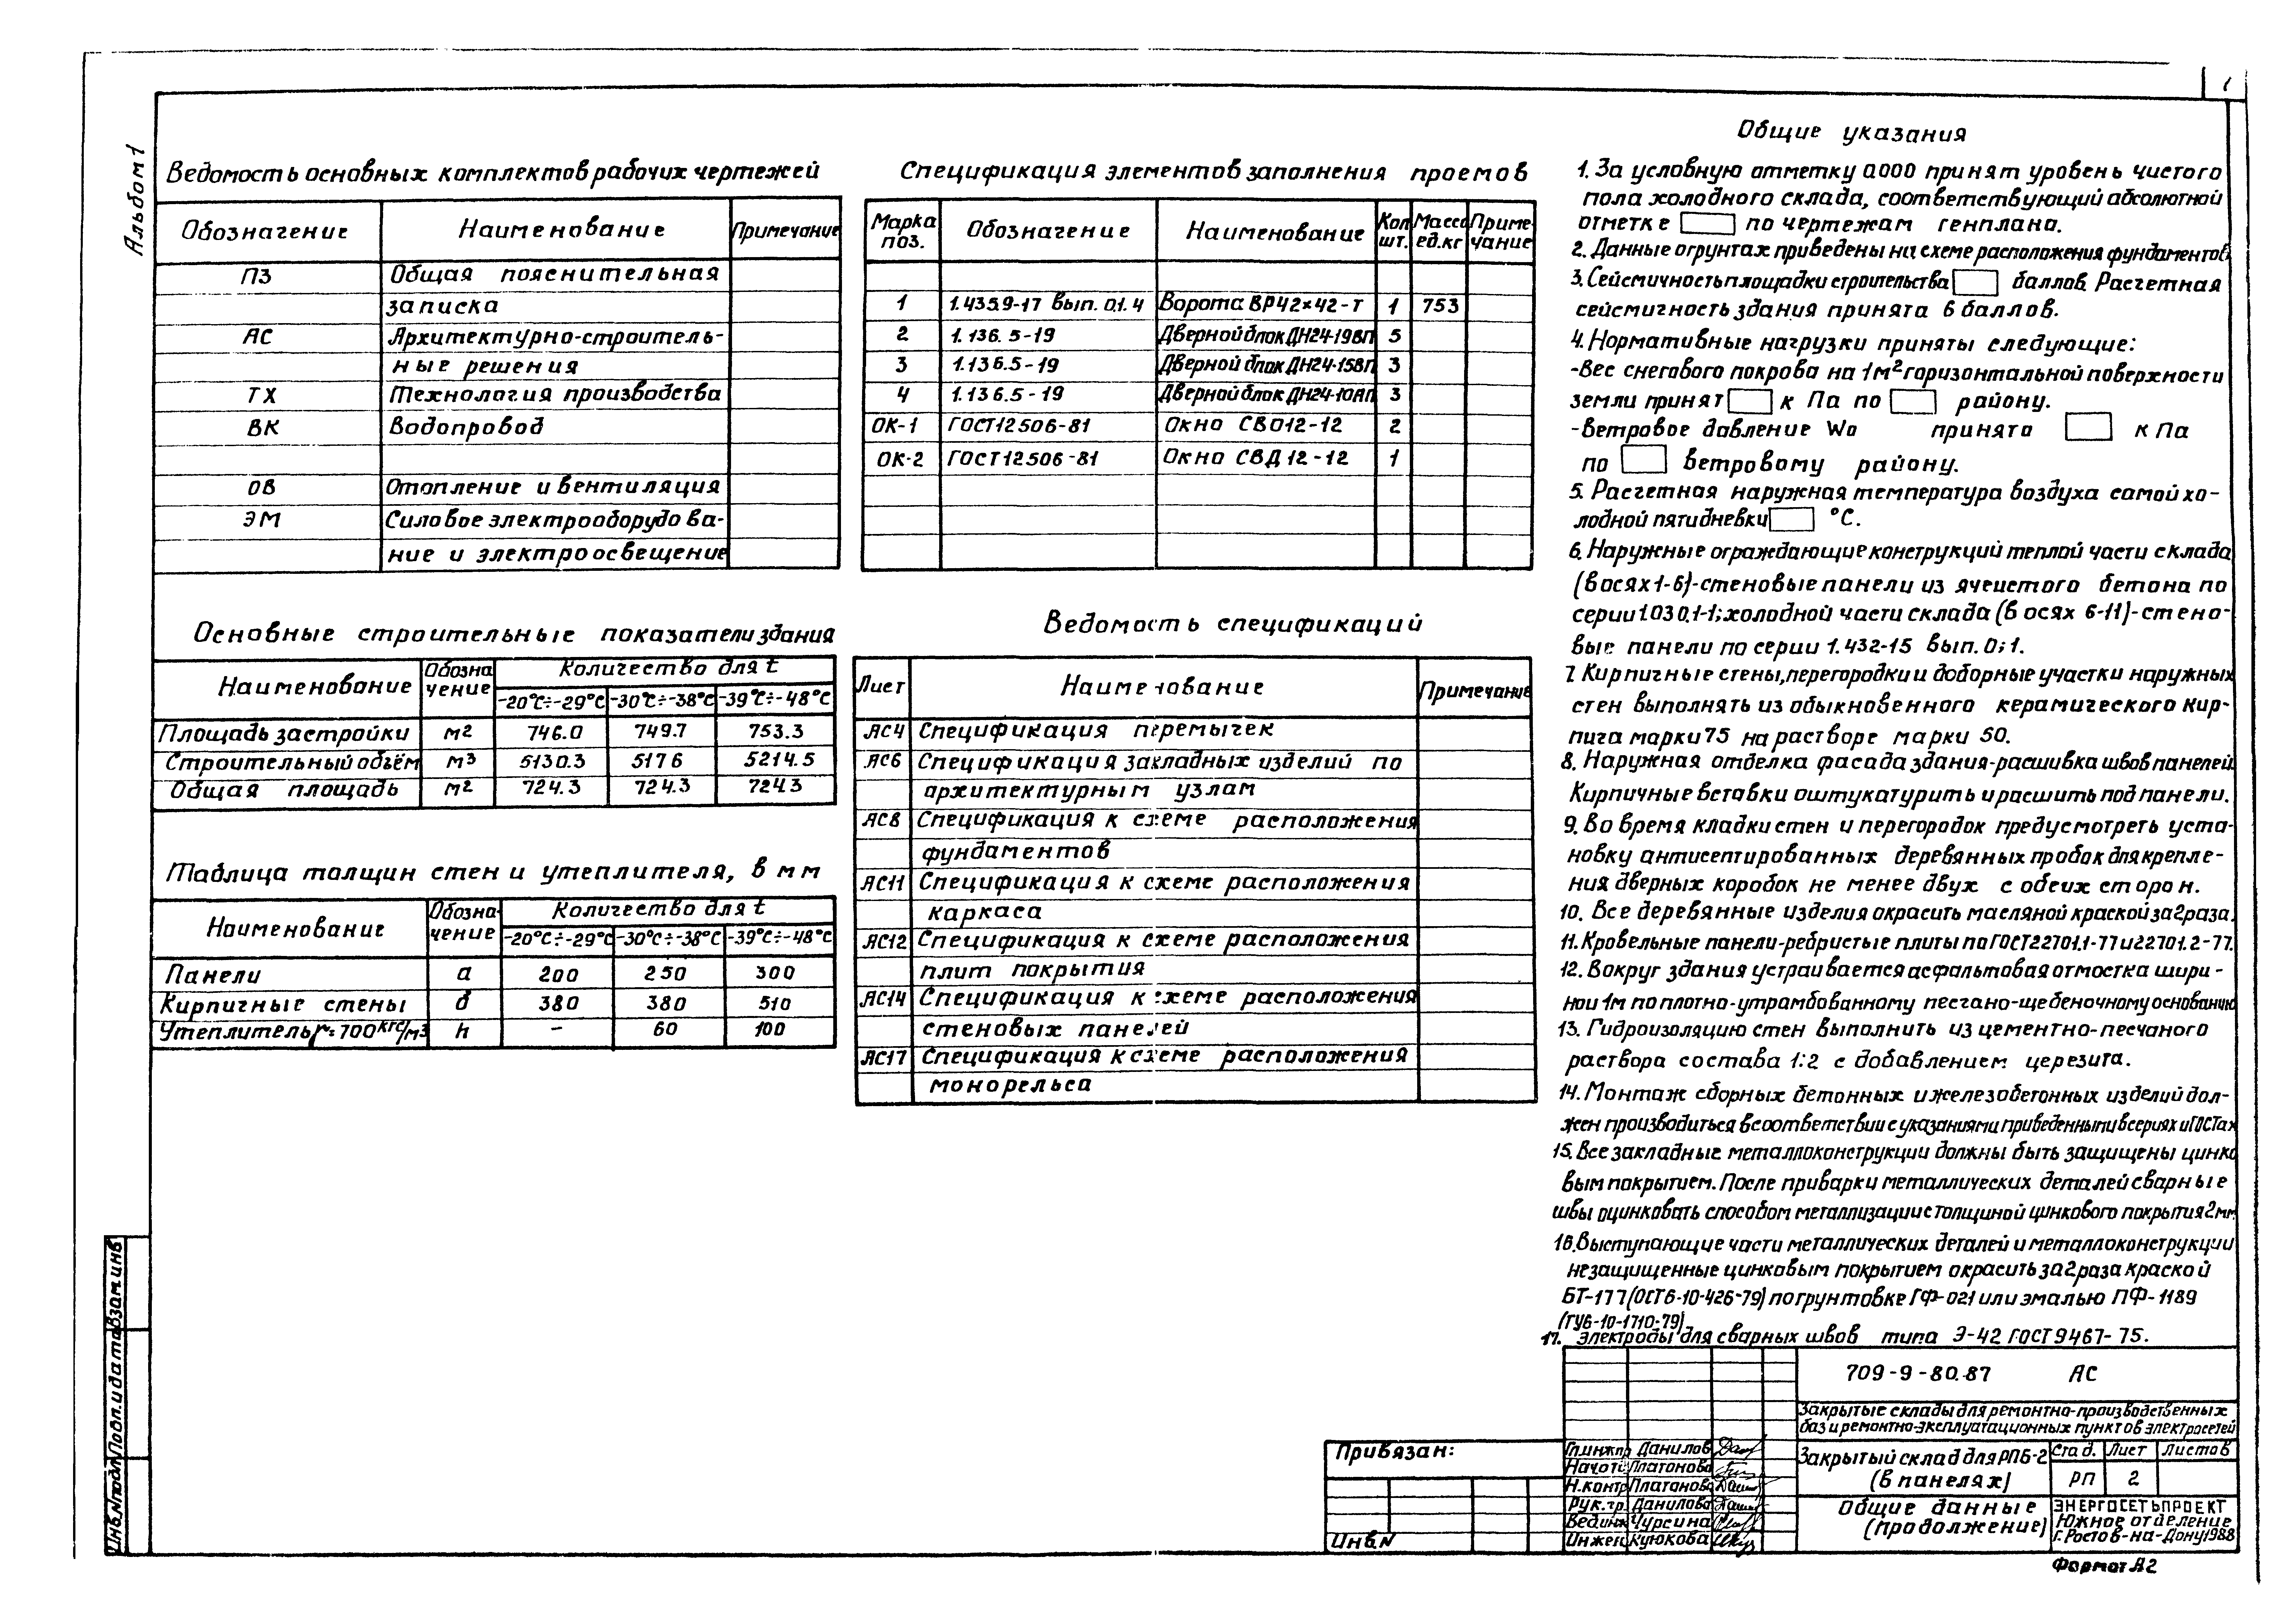 1
Альбом 1
Ведомость основных комплектов рабочих чертежей
Обозначение Наименование Примечание
ПЗ Общая пояснительная
записка
АС Архитектурно-строитель-
ные решения
ТХ Технология производства
ВК Водопровод
ОВ Отопление и вентиляция
ЭМ Силовое электрооборудова-
ние и электроосвещение
Основные строительные показатели здания
Наименование Обозна чение Количество для t
-20°С÷-29°С -30°С÷-38°С -39°С÷-48°С
Площадь застройки м2 746.0 749.7 753.3
Строительный объём м3 5130.3 5176 5214.5
Общая площадь м2 724.3 724.3 724.3
Таблица толщин стен и утеплителя, в мм
Наименование Обозна-чение Количество для t
-20°С÷-29°С -30°С÷-38°С -39°С÷-48°С
Панели а 200 250 300
Кирпичные стены б 380 380 510
Утеплитель γ=700кгс/м3 h – 60 100
Спецификация элементов заполнения проемов
Марка поз. Обозначение Наименование Кол шт. Масса ед.кг Приме-чание
1 1.435.9-17 вып. 0.1.4 Ворота ВР42×42-Т 1 753
2 1.136.5-19 Дверной блок ДН24-19ВП 5
3 1.136.5-19 Дверной блок ДН24-15ВП 3
4 1.136.5-19 Дверной блок ДН24-10АП 3
ОК-1 ГОСТ12506-81 Окно СВО12-12 2
ОК-2 ГОСТ12506-81 Окно СВД12-12 1
Ведомость спецификаций
Лист Наименование Примечание
АС4 Спецификация перемычек
АС6 Спецификация закладных изделий по
архитектурным узлам
АС8 Спецификация к схеме расположения
фундаментов
АС11 Спецификация к схеме расположения
каркаса
АС12 Спецификация к схеме расположения
плит покрытия
АС14 Спецификация к схеме расположения
стеновых панелей
АС17 Спецификация к схеме расположения
монорельса
Общие указания
1. За условную отметку 0.000 принят уровень чистого
пола холодного склада, соответствующий абсолютной
отметке по чертежам генплана.
2. Данные о грунтах приведены на схеме расположения фундаментов
3. Сейсмичность площадки строительства баллов. Расчетная
сейсмичность здания принята 6 баллов.
4. Нормативные нагрузки приняты следующие:
-Вес снегового покрова на 1м2 горизонтальной поверхности
земли принят кПа по району.
-Ветровое давление Wo принято кПа
по ветровому району.
5. Расчетная наружная температура воздуха самой хо-
лодной пятидневки °С.
6. Наружные ограждающие конструкций теплой части склада
(в осях 1-6)-стеновые панели из ячеистого бетона по
серии 1.030.1-1; холодной части склада (в осях 6-11)-стено-
вые панели по серии 1.432-15 вып. 0; 1.
7. Кирпичные стены, перегородки и доборные участки наружных
стен выполнять из обыкновенного керамического кир-
пича марки 75 на растворе марки 50.
8. Наружная отделка фасада здания-расшивка швов панелей.
Кирпичные вставки оштукатурить и расшить под панели.
9. Во время кладки стен и перегородок предусмотреть уста-
новку антисептированных деревянных пробок для крепле-
ния дверных коробок не менее двух с обеих сторон.
10. Все деревянные изделия окрасить масляной краской за 2 раза.
11. Кровельные панели-ребристые плиты по ГОСТ22701.1-77 и 22701.2-77.
12. Вокруг здания устраивается асфальтовая отмостка шири-
ной 1м по плотно-утрамбованному песчано-щебеночному основанию
13. Гидроизоляцию стен выполнить из цементно-песчаного
раствора состава 1:2 с добавлением церезита.
14. Монтаж сборных бетонных и железобетонных изделий дол-
жен производиться в соответствии с указаниями приведенными в сериях и ГОСТах
15. Все закладные металлоконструкции должны быть защищены цинко
вым покрытием. После приварки металлических деталей сварные
швы оцинковать способом металлизации с толщиной цинкового покрытия 2мм.
16. Выступающие части металлических деталей и металлоконструкции
незащищенные цинковым покрытием окрасить за 2 раза краской
БТ-177 (ОСТ6-10-426-79) по грунтовке ГФ-021 или эмалью ПФ-1189
(ТУ6-10-1710-79)
17. Электроды для сварных швов типа Э-42 ГОСТ 9467-75.
709-9-80.87 АС
Закрытые склады для ремонтно-производственных
баз и ремонтно-эксплуатационных пунктов электросетей
Закрытый склад для РПБ-2
(в панелях)
Стад. Лист Листов
РП 2
Общие данные
(продолжение)
ЭНЕРГОСЕТЬПРОЕКТ
Южное отделение
г. Ростов-на-Дону 1988
Гл.инж.пр Данилов
Нач.отд Платонова
Н.контр Платонова
Рук.гр. Данилова
Вед.инж Чурсина
Инжен Куюкова
Привязан:
Инв.N
Инв.N подл. Подп. и дата Взам.инв
Формат А2